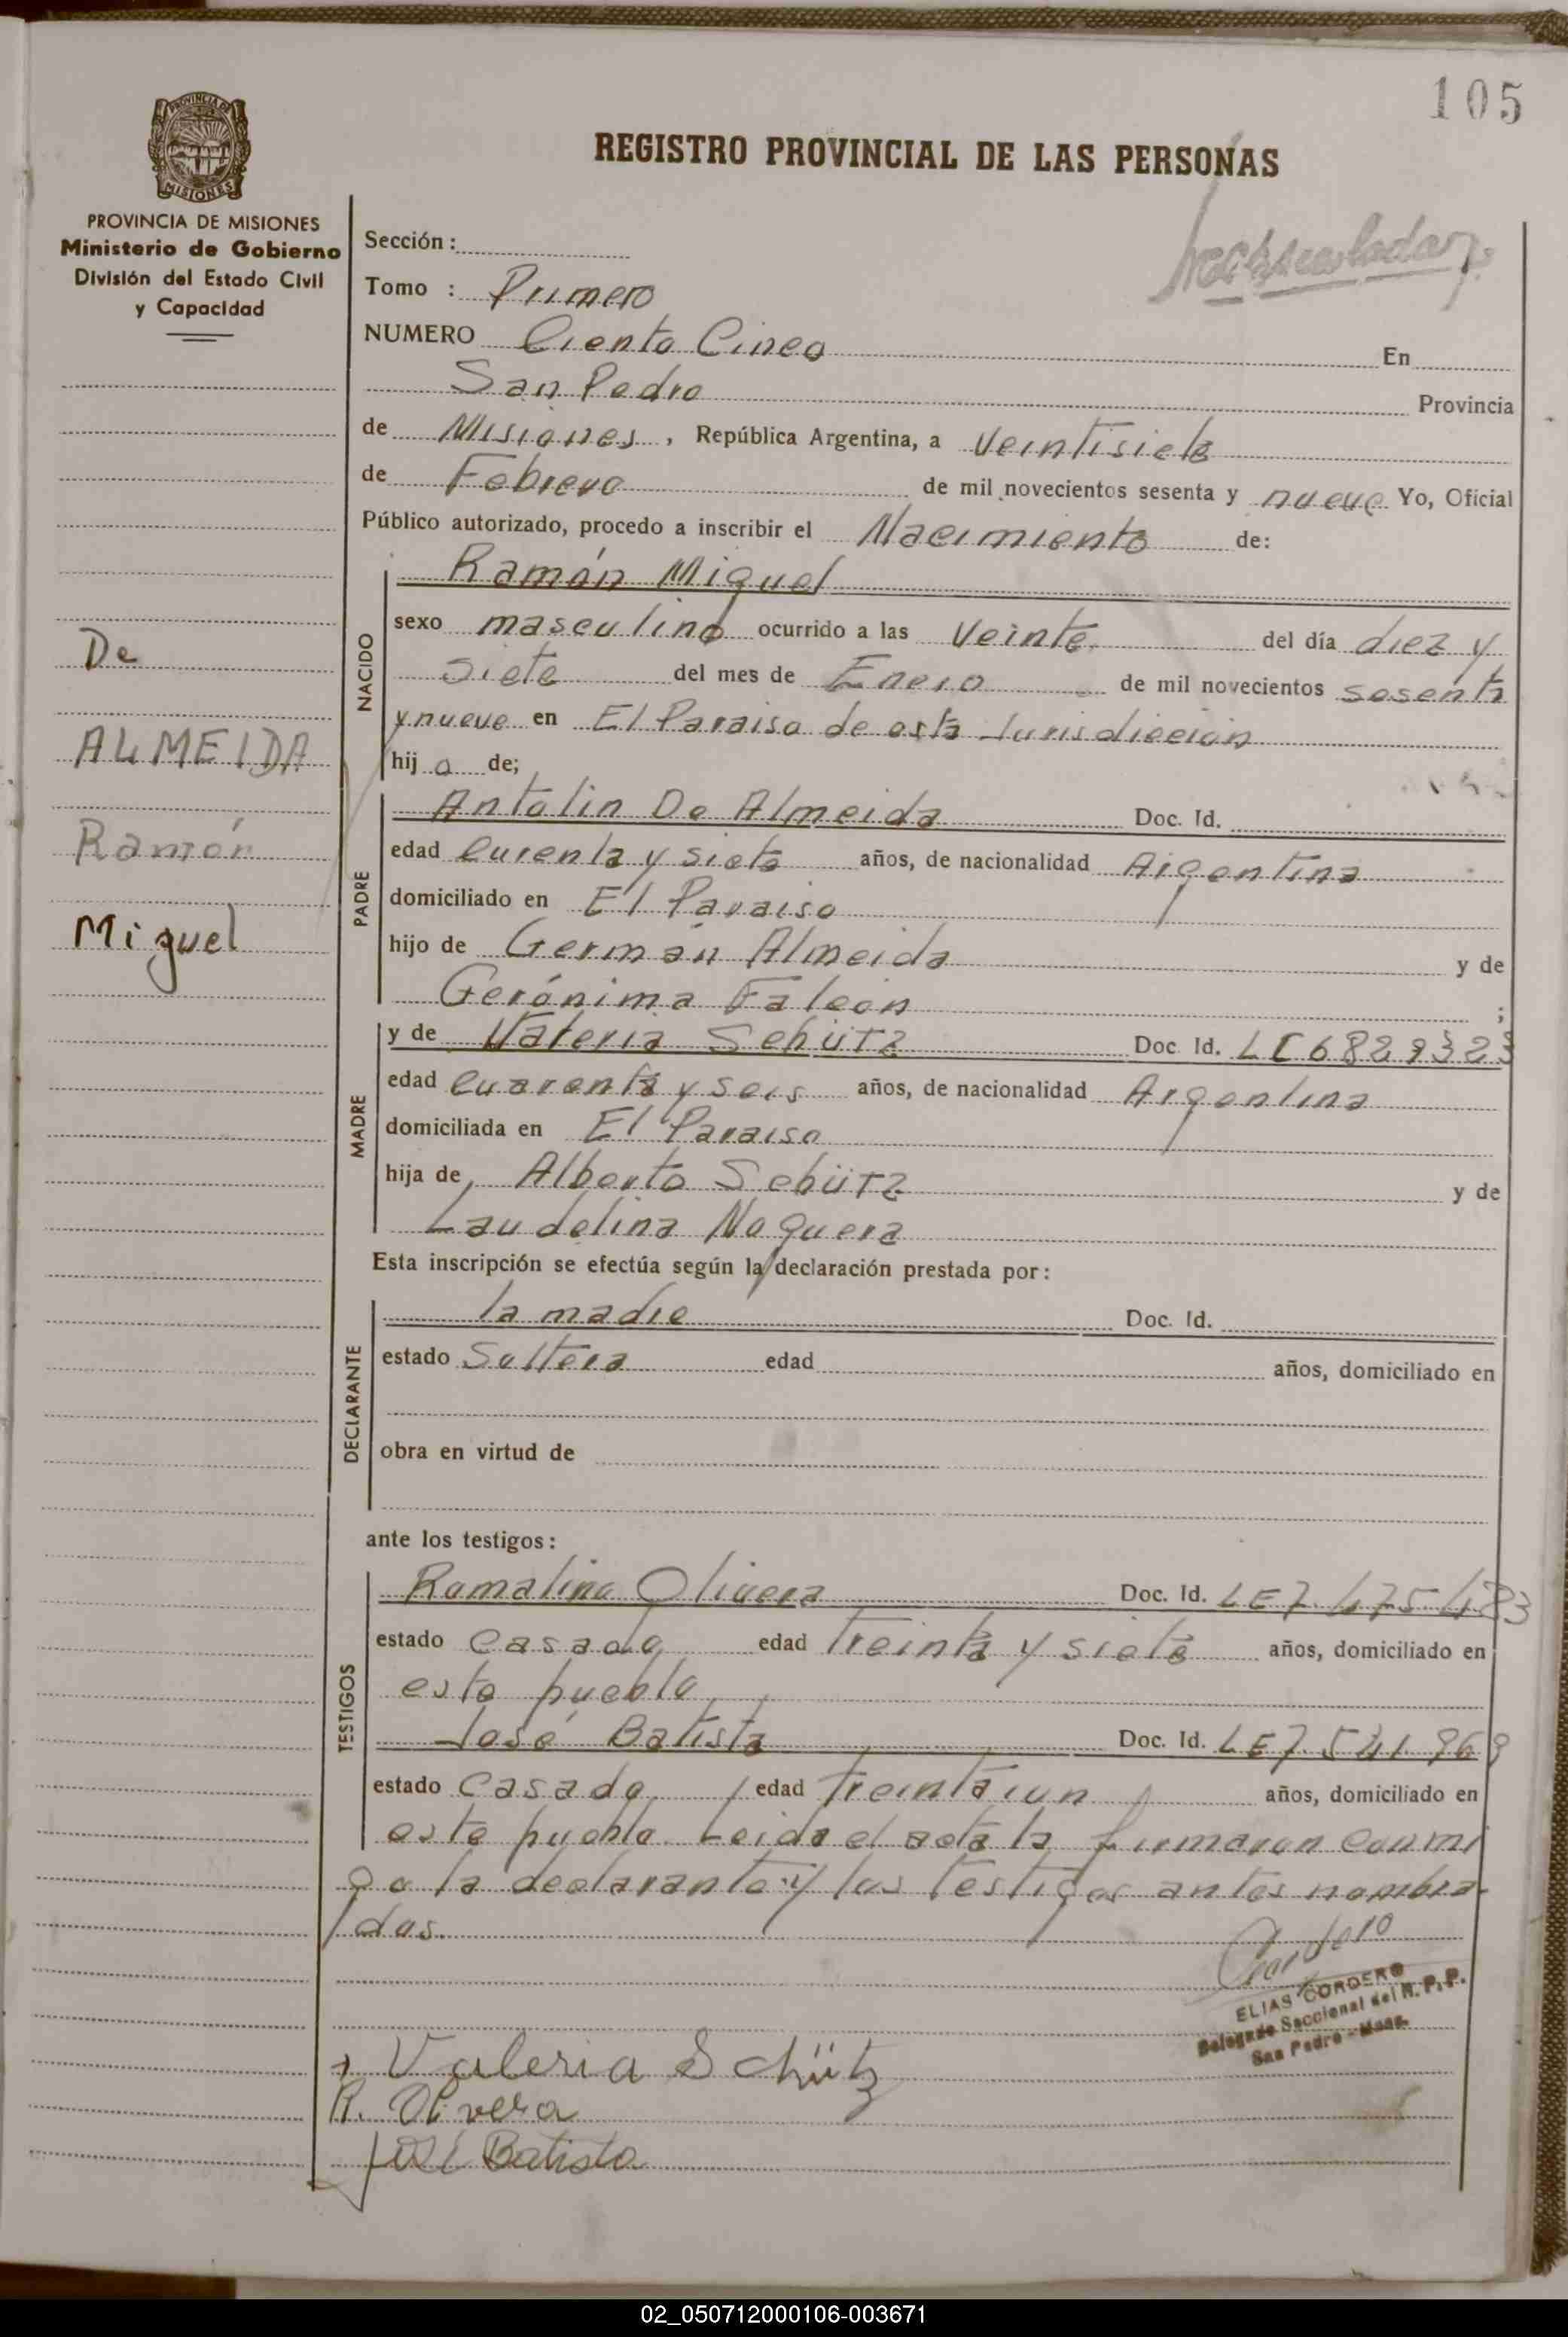 105
REGISTRO PROVINCIAL DE LAS PERSONAS
PROVINCIA DE
MISIONES
PROVINCIA DE MISIONES
Ministerio de Gobierno
División del Estado Civil
y Capacidad
De
ALMEIDA
Ramón
Miguel
Sección:
Tomo : Primero
NUMERO Ciento Cinco En
San Pedro Provincia
de Misiones, República Argentina, a Veintisiete
de Febrero de mil novecientos sesenta y nueve Yo, Oficial
Público autorizado, procedo a inscribir el Nacimiento de:
NACIDO
Ramón Miguel
sexo masculino ocurrido a las Veinte del día diez y
siete del mes de Enero de mil novecientos sesenta
y nueve en El Paraiso de esta Jurisdicción
hijo de;
PADRE
Antolin De Almeida Doc. Id.
edad Curenta y siete años, de nacionalidad Argentina
domiciliado en El Paraiso
hijo de Germán Almeida y de
Gerónima Falcón ;
MADRE
y de Valeria Schütz Doc. Id. LC 6829323
edad Cuarenta y seis años, de nacionalidad Argentina
domiciliada en El Paraiso
hija de Alberto Schütz y de
Laudelina Noguera
Esta inscripción se efectúa según la declaración prestada por:
DECLARANTE
la madre Doc. Id.
estado Soltera edad años, domiciliado en
obra en virtud de
ante los testigos:
TESTIGOS
Ramalino Olivera Doc. Id. LE7.475.483
estado Casado edad treinta y siete años, domiciliado en
este pueblo
José Batista Doc. Id. LE7.541.969
estado Casado edad treintaiun años, domiciliado en
este pueblo. Leida el acta la firmaron conmi
go la declarante y los testigos antes nombra-
dos.
Cordero
ELIAS CORDERO
Delegado Seccional del R.P.P.
San Pedro - Mnes.
Valeria Schütz
R. Olivera
José Batista
02_050712000106-003671